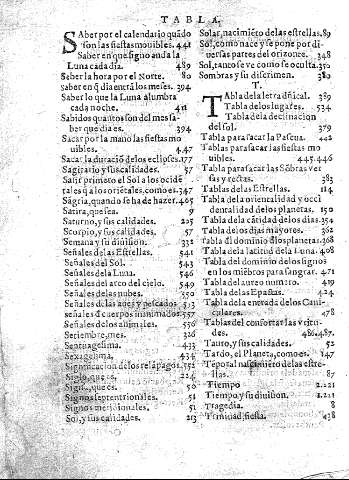 TABLA.
SAber por el calendario quádo
son las fiestas mouibles. 441
Saber en que signo anda la
Luna cada dia. 489
Saber la hora por el Norte. 80
Saber en q̃ dia entrá los meses. 394
Saber lo que la Luna alumbra
cada noche. 411
Sabidos quantos son del mes sa-
ber que dia es. 394
Sacar por la mano las fiestas mo
uibles. 447
Sacar la duració delos eclipses. 177
Sagitario y sus calidades. 57
Salir primero el Sol a los ocidẽ
tales q̃ a los oriẽtales, como es. 347
Sãgria, quando se ha de hazer. 465
Satira, que sea. 9
Saturno, y sus calidades. 205
Scorpio, y sus calidades. 57
Semana y su diuision. 332
Señales de las Estrellas. 541
Señales del Sol. 543
Señales dela Luna. 546
Señales del arco del cielo. 549
Señales de las nubes. 550
Señales de las aues y pescados 553
señales d cuerpos inanimados 557
Señales de los animales. 556
Setiembre, mes. 326
Sentuagesima. 433
Sexagesima. 434
Significacion de los relãpagos 552
Siglo, que es. 324
Signo, que es. 50
Signos setentrionales. 51
Signos meridionales. 51
Sol, y sus calidades. 213
Solar, nacimiẽto de las estrellas. 89
Sol, como nace y se pone por di-
uersas partes del orizonte. 348
Sol, tanto se ve como se oculta. 350
Sombras y su discrimen. 380
T.
TAbla de la letra dñical. 389
Tabla de los lugares. 534
Tabla de la declinacion
del sol. 379
Tabla para sacar la Pascua. 442
Tabla para sacar las fiestas mo
uibles. 445. 446
Tabla para sacar las Sõbras ver
sas y rectas. 383
Tablas de las Estrellas. 114
Tabla de la orientalidad y occi
dentalidad de los planetas. 150
Tabla de la cãtidad de los dias. 354
Tabla de los dias mayores. 362
tabla dl dominio d los planetas. 368
Tabla de la latitud de la Luna. 408
Tabla del dominio de los signos
en los miẽbros para sangrar. 471
Tabla del aureo numero. 419
Tabla de las Epactas. 424
Tabla de la entrada de los Cani-
culares. 478
Tablas del confortar las virtu-
des. 486. 487.
Tauro, y sus calidades. 52
Tardo, el Planeta, como es. 147
Tẽporal nascimiẽto de las estre-
llas. 87
Tiempo 2. 221
Tiempo, y su diuision. 2. 221
Tragedia. 8
Trinidad, fiesta. 438